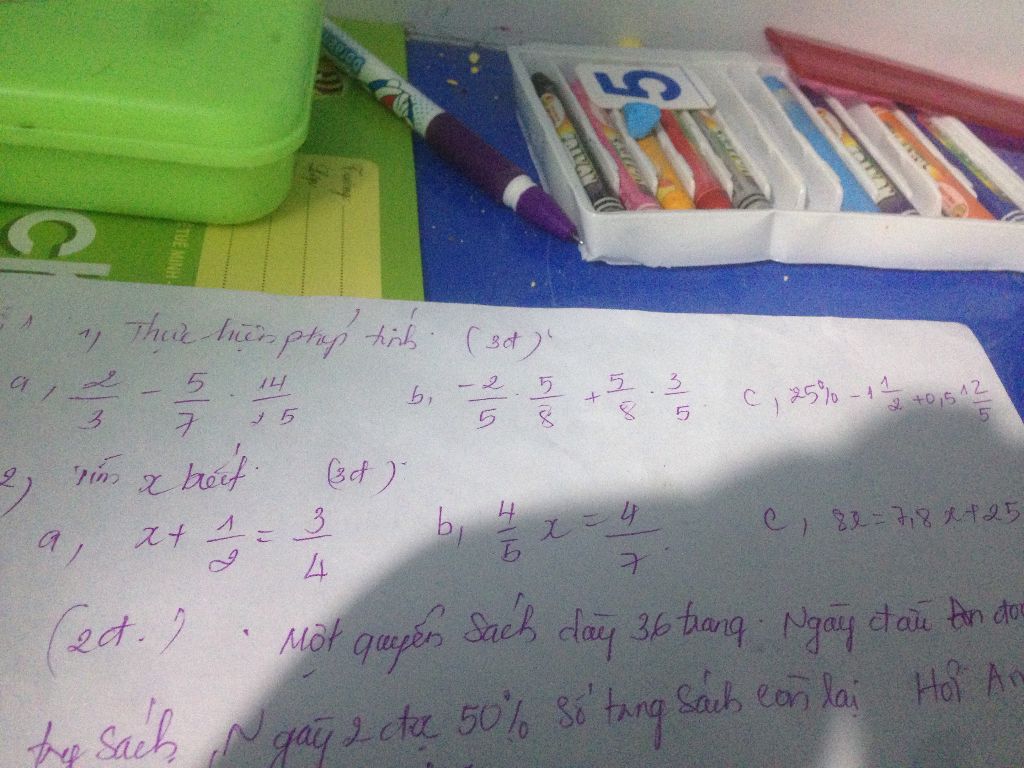 5
CH
TUỆ MINH
Trường
Lớp
1, Thực hiện phép tính. (3đ)
a, 2/3 - 5/7 . 14/15 b, -2/5 . 5/8 + 5/8 . 3/5 c, 25% - 1 1/2 + 0,5 12/5
2, Tìm x biết. (3đ)
a, x + 1/2 = 3/4 b, 4/5 x = 4/7 c, 8x = 7,8x + 25
(2đ.) Một quyển sách dày 36 trang. Ngày đầu An đọc
sách, Ngày 2 đọc 50% số trang sách còn lại Hỏi An